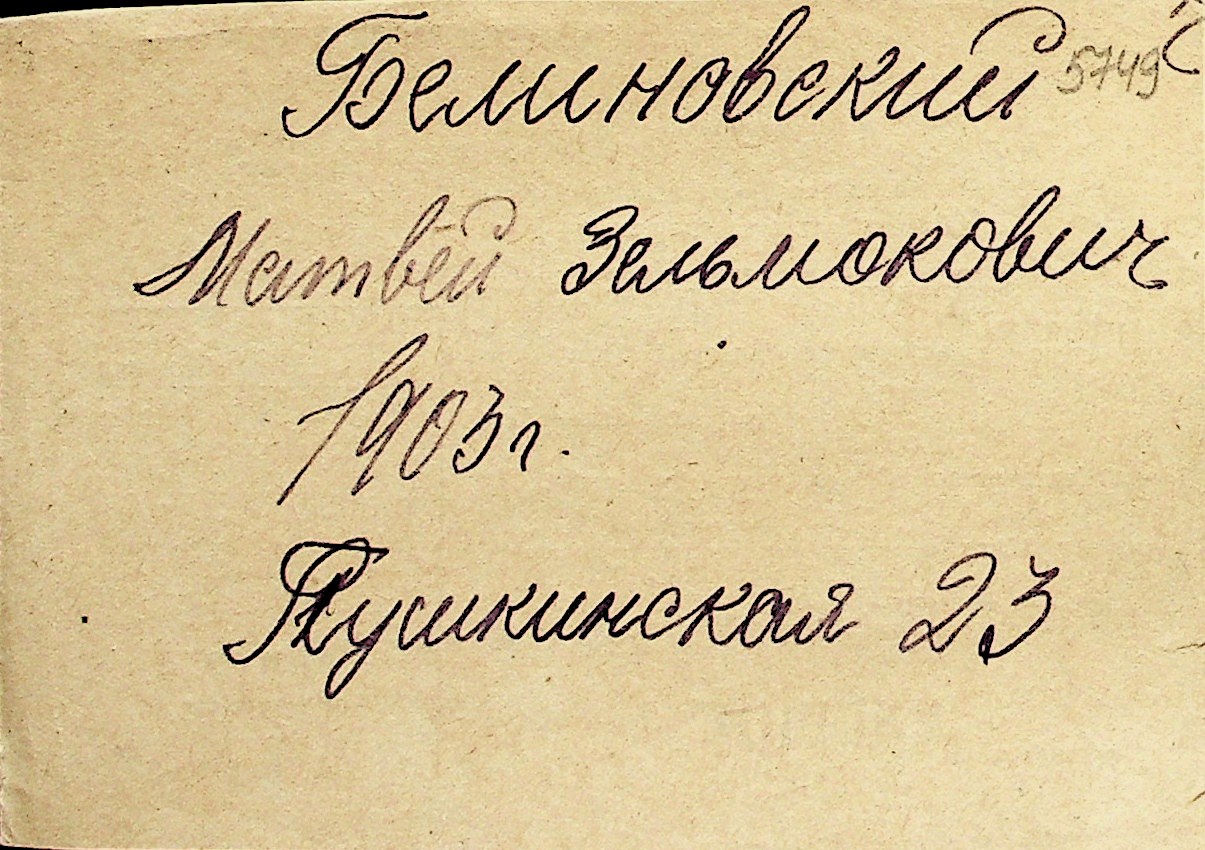 Белиновский 5749
Матвей Зельмокович
1903 г.
Пушкинская 23